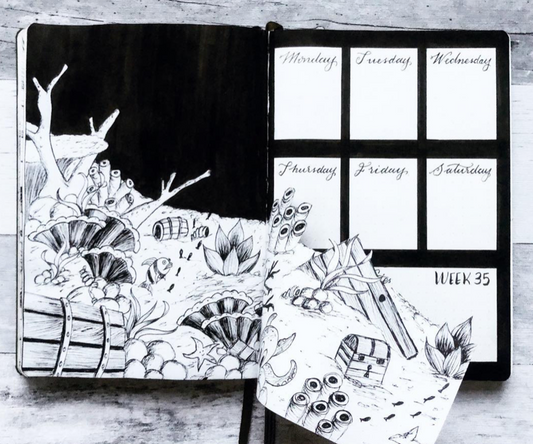 Monday
Tuesday
Wednesday
Thursday
Friday
Saturday
WEEK 35